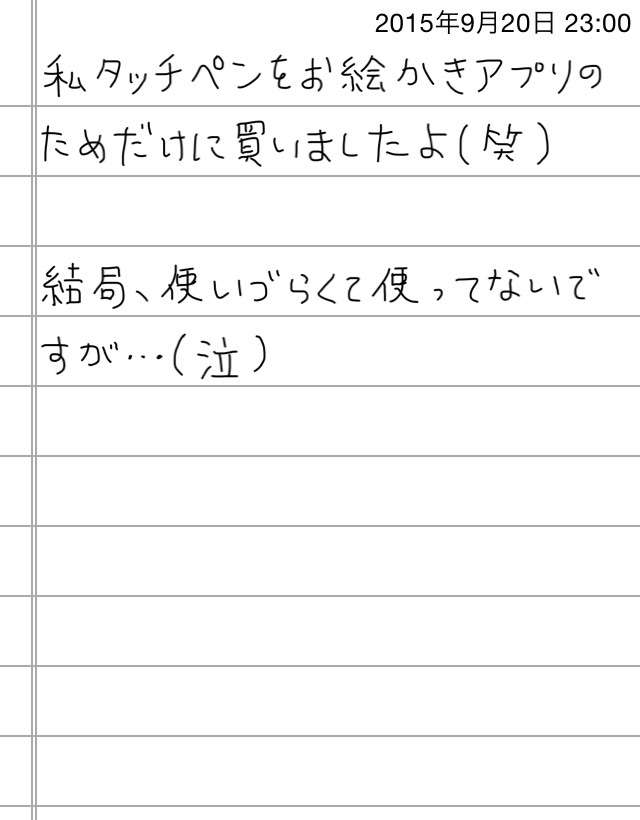 2015年9月20日 23:00
私タッチペンをお絵かきアプリの
ためだけに買いましたよ(笑)
結局、使いづらくて使ってないで
すが…(泣)